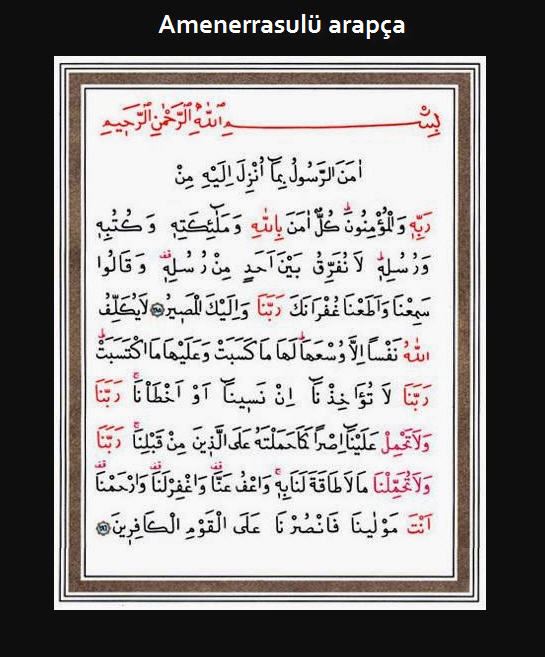 Amenerrasulü arapça
بِسْــــــــمِ اللّٰهِ الرَّحْمٰنِ الرَّحٖيمِ
اٰمَنَ الرَّسُولُ بِمَٓا اُنْزِلَ اِلَيْهِ مِنْ
رَبِّهٖ وَالْمُؤْمِنُونَۜ كُلٌّ اٰمَنَ بِاللّٰهِ وَمَلٰٓئِكَتِهٖ وَكُتُبِهٖ
وَرُسُلِهٖۜ لَا نُفَرِّقُ بَيْنَ اَحَدٍ مِنْ رُسُلِهٖ۠ وَقَالُوا
سَمِعْنَا وَاَطَعْنَا غُفْرَانَكَ رَبَّنَا وَاِلَيْكَ الْمَصٖيرُ ﴿٢٨٥﴾ لَا يُكَلِّفُ
اللّٰهُ نَفْساً اِلَّا وُسْعَهَاۜ لَهَا مَا كَسَبَتْ وَعَلَيْهَا مَا اكْتَسَبَتْۜ
رَبَّنَا لَا تُؤَاخِذْنَٓا اِنْ نَسٖينَٓا اَوْ اَخْطَأْنَاۚ رَبَّنَا
وَلَا تَحْمِلْ عَلَيْنَٓا اِصْراً كَمَا حَمَلْتَهُ عَلَى الَّذٖينَ مِنْ قَبْلِنَاۚ رَبَّنَا
وَلَا تُحَمِّلْنَا مَا لَا طَاقَةَ لَنَا بِهٖۚ وَاعْفُ عَنَّا۠ وَاغْفِرْ لَنَا۠ وَارْحَمْنَا۠
اَنْتَ مَوْلٰينَا فَانْصُرْنَا عَلَى الْقَوْمِ الْكَافِرٖينَ ﴿٢٨٦﴾